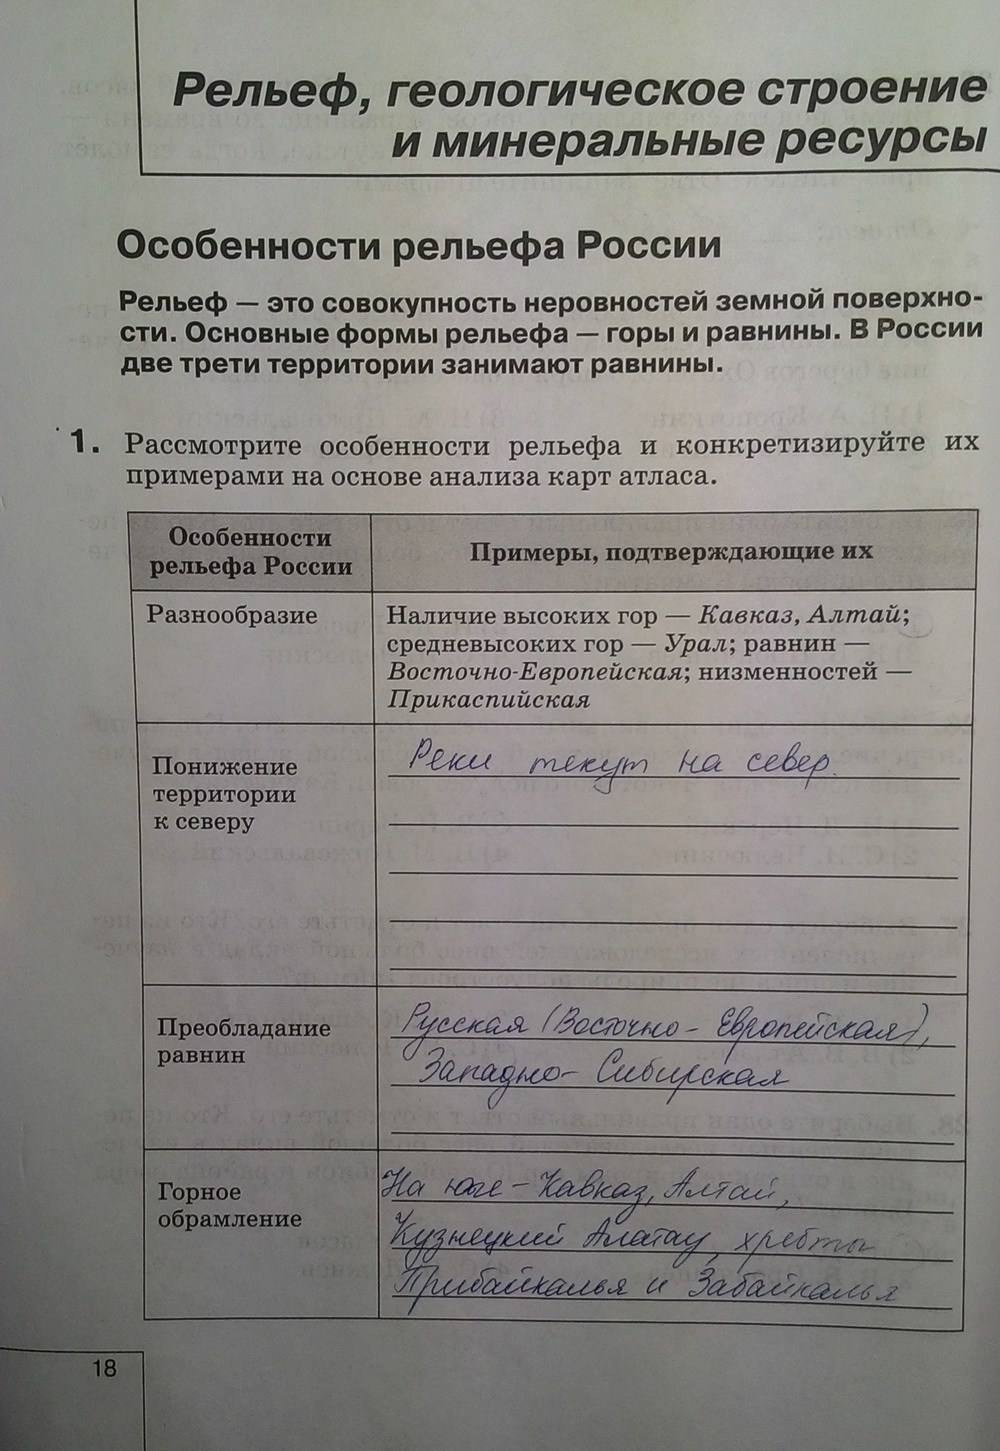 Рельеф, геологическое строение
и минеральные ресурсы
Особенности рельефа России
Рельеф — это совокупность неровностей земной поверхно-
сти. Основные формы рельефа — горы и равнины. В России
две трети территории занимают равнины.
1. Рассмотрите особенности рельефа и конкретизируйте их
примерами на основе анализа карт атласа.
Особенности
рельефа России
Примеры, подтверждающие их
Разнообразие
Наличие высоких гор — Кавказ, Алтай;
средневысоких гор — Урал; равнин —
Восточно-Европейская; низменностей —
Прикаспийская
Понижение
территории
к северу
Реки текут на север.
Преобладание
равнин
Русская (Восточно-Европейская),
Западно-Сибирская
Горное
обрамление
На юге - Кавказ, Алтай,
Кузнецкий Алатау, хребты
Прибайкалья и Забайкалья
18